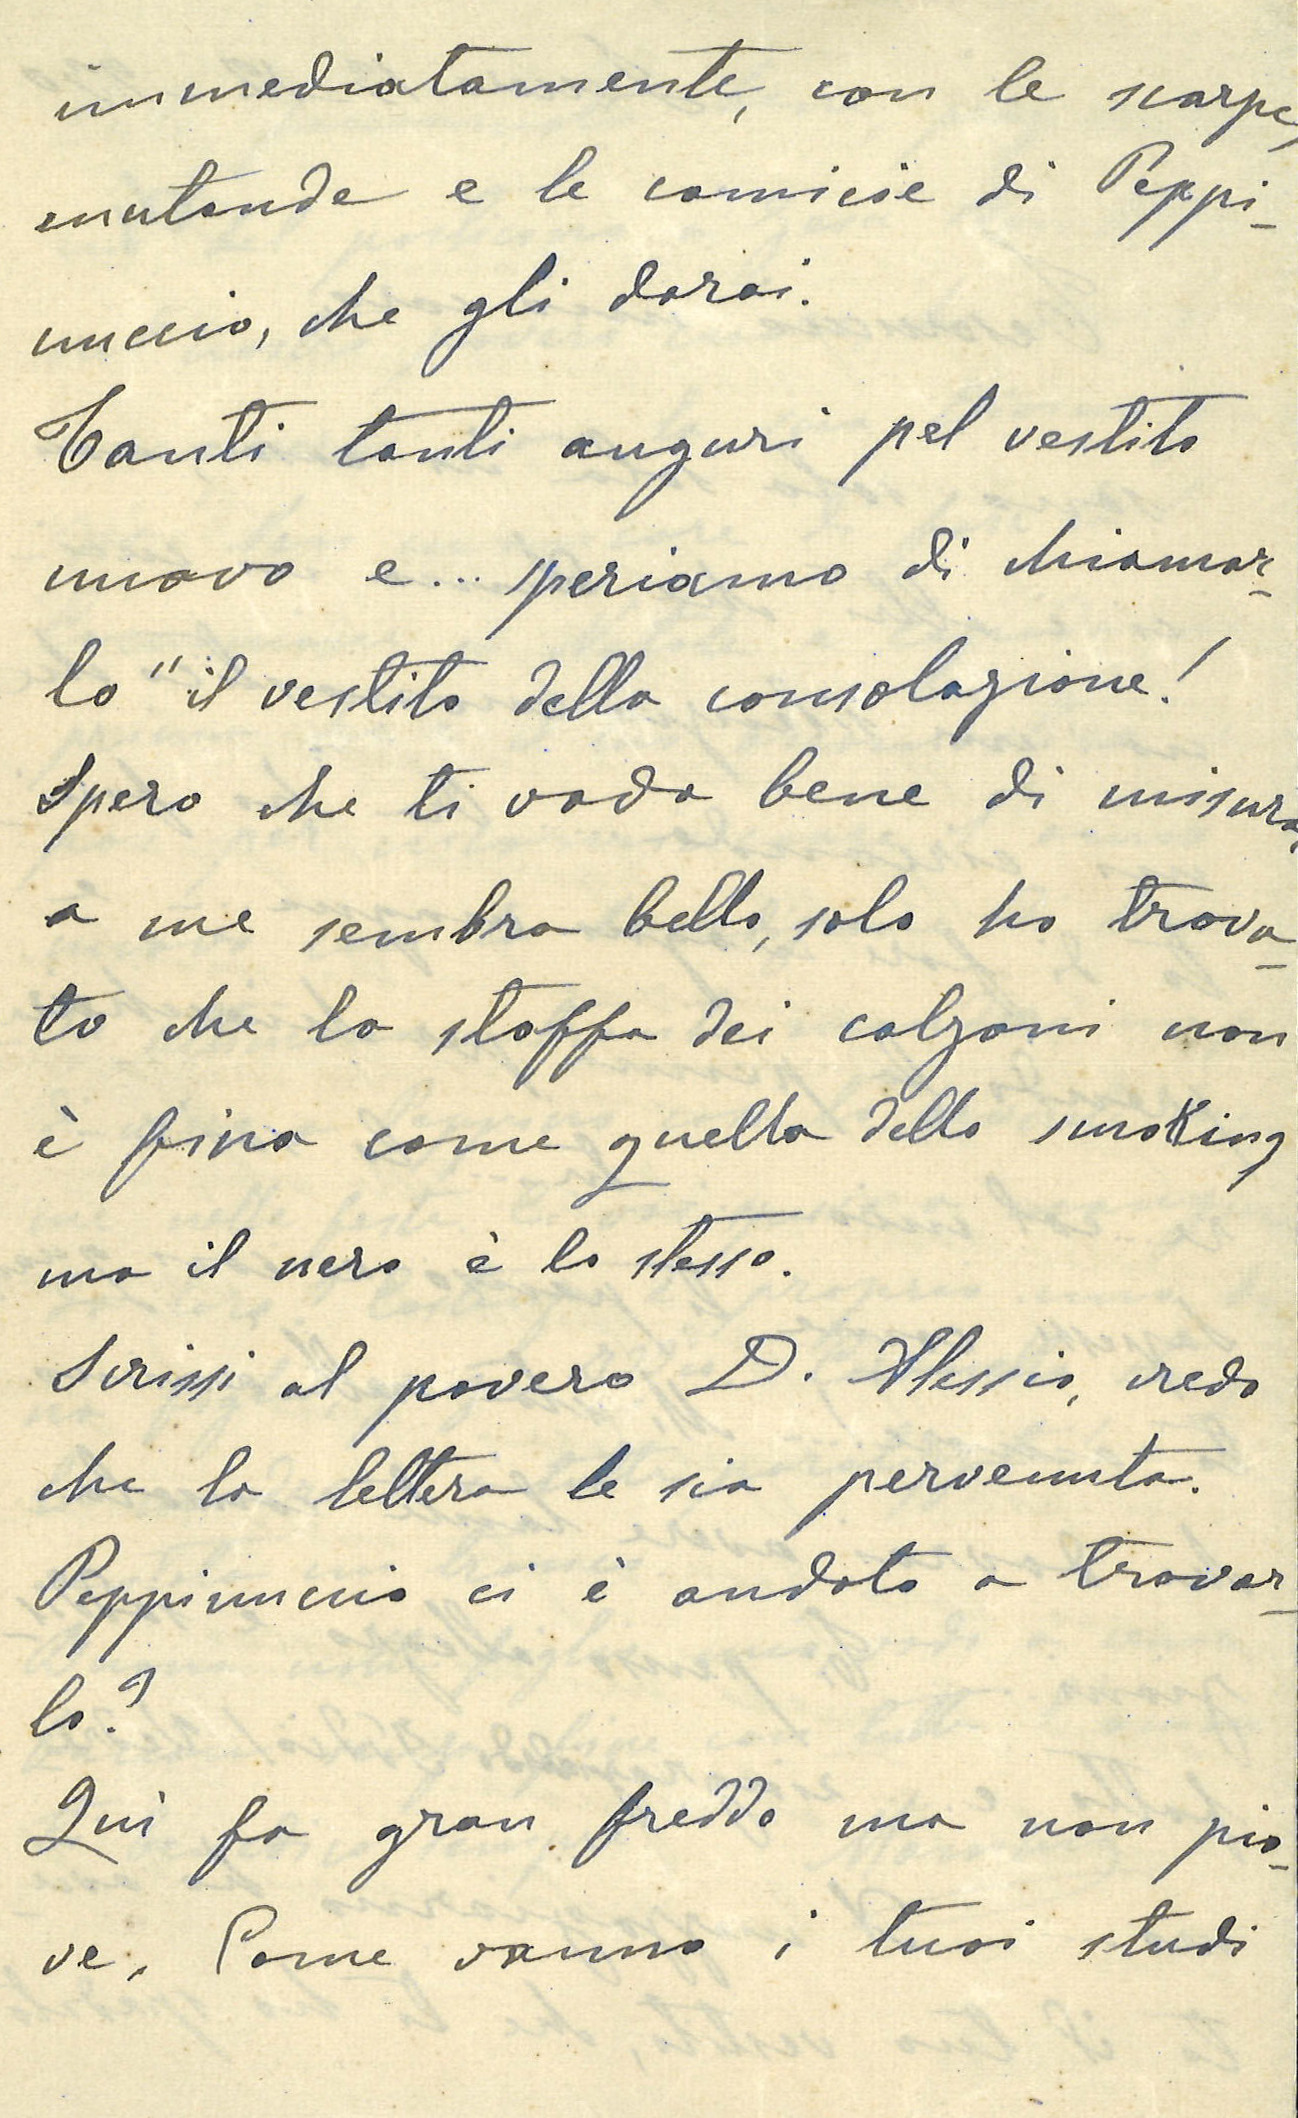 immediatamente, con le scarpe,
mutande e le camicie di Peppi-
nuccio, che gli darai.
Tanti tanti auguri pel vestito
nuovo e... speriamo di chiamar-
lo "il vestito della consolazione!
Spero che ti vada bene di misura,
a me sembra bello, solo ho trova-
to che la stoffa dei calzoni non
è fina come quella dello smoking
ma il nero è lo stesso.
Scrissi al povero D. Alessio, credo
che la lettera le sia pervenuta.
Peppinuccio ci è andato a trovar-
lo?
Quì fa gran freddo ma non pio-
ve. Come vanno i tuoi studi